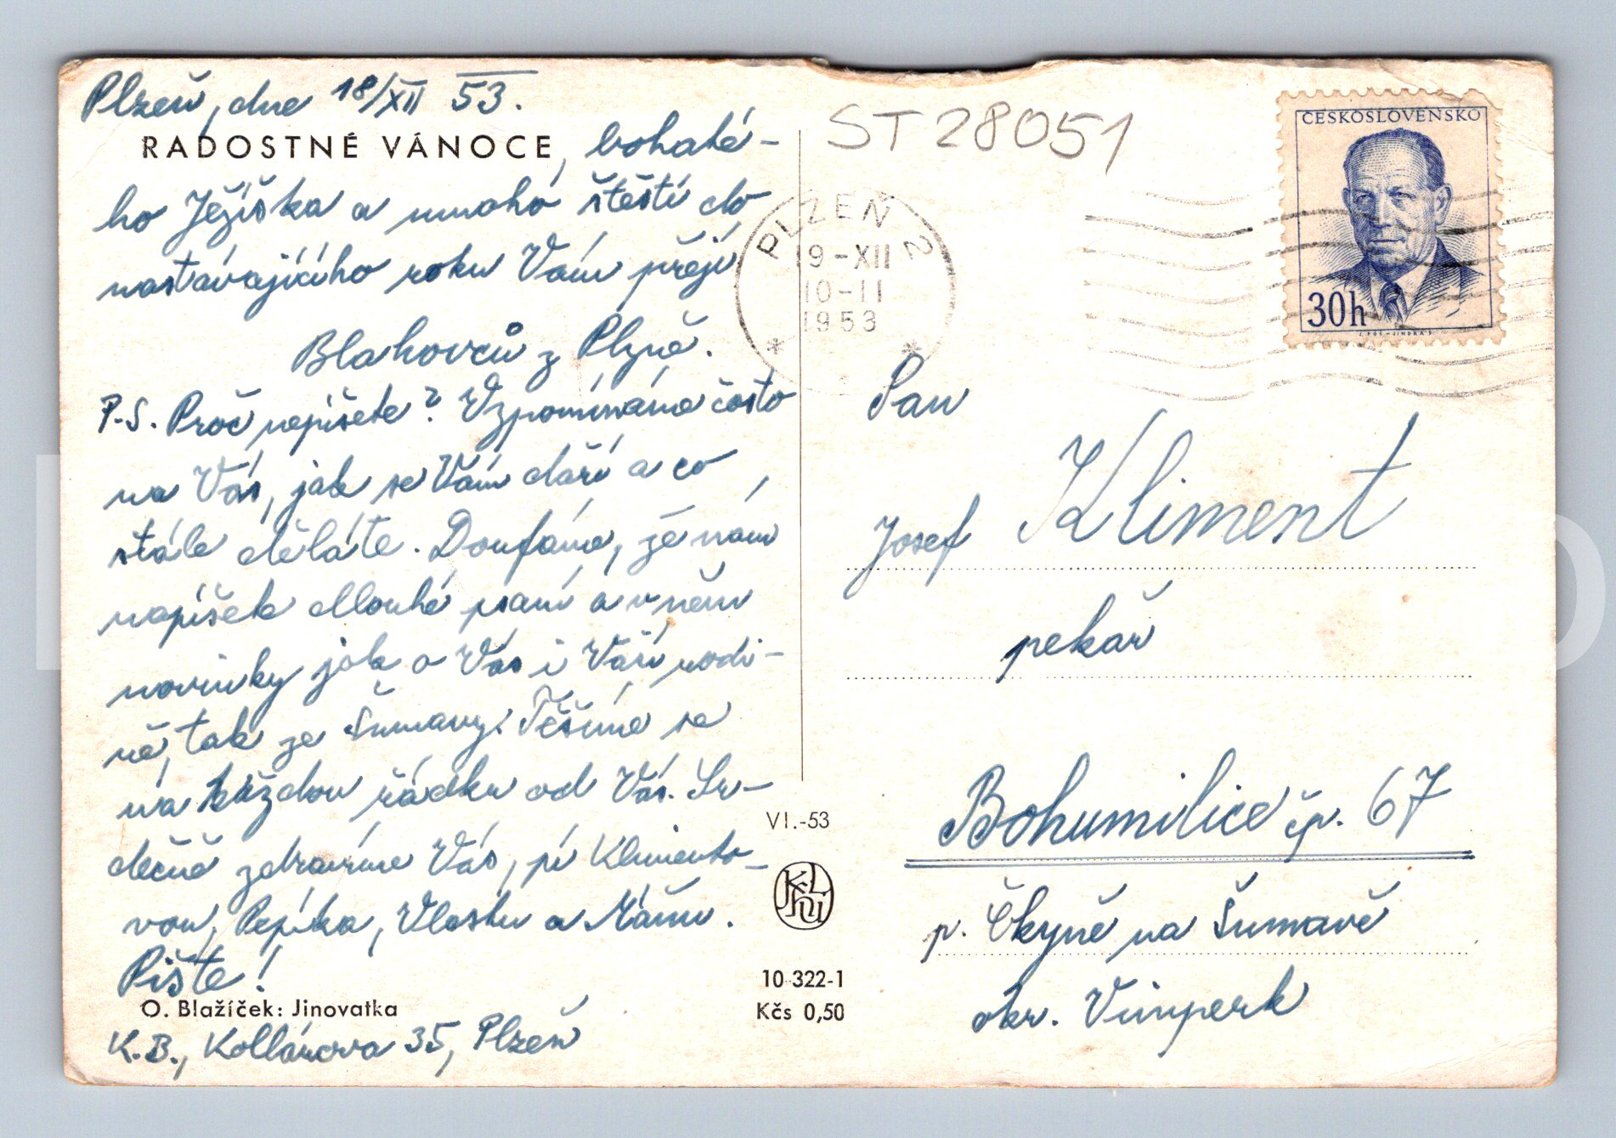 Plzeň, dne 18/XII 53.
RADOSTNÉ VÁNOCE, bohaté-
ho Ježíška a mnoho štěstí do
nastávajícího roku Vám přejí
Blahovců z Plzně.
P.S. Proč nepíšete? Vzpomínáme často
na Vás, jak se Vám daří a co
stále děláte. Doufáme, že nám
napíšete dlouhé psaní a v něm
novinky jak o Vás i Vaší rodi-
ně, tak ze Šumavy. Těšíme se
na každou řádku od Vás. Sr-
dečně zdravíme Vás, pí Klimento-
vou, Pepíka, Vlastu a Máňu.
Pište!
O. Blažíček: Jinovatka
K.B., Kollárova 35, Plzeň
VI.-53
10 322-1
Kčs 0,50
ST 28051
PLZEŇ 2
19-XII
10-11
1953
ČESKOSLOVENSKO
30h
Pan
Josef Kliment
pekař
Bohumilice čp. 67
p. Čkyně na Šumavě
okr. Vimperk